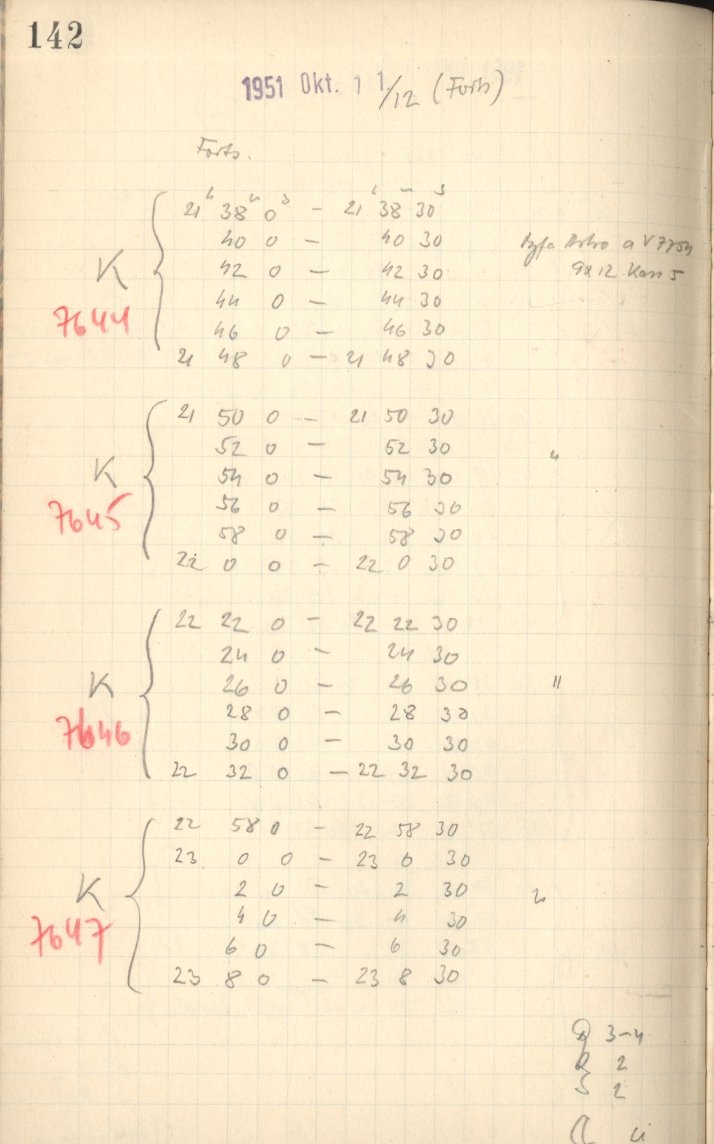 142
1951 Okt. 11/12 (Forts)
Forts.
21ʰ 38ᵐ 0ˢ – 21ʰ 38ᵐ 30ˢ
40 0 – 40 30 Agfa Astro a V7754
K 42 0 – 42 30 9x12 Kass 5
7644 44 0 – 44 30
46 0 – 46 30
21 48 0 – 21 48 30
21 50 0 – 21 50 30
52 0 – 52 30 "
K 54 0 – 54 30
7645 56 0 – 56 30
58 0 – 58 30
22 0 0 – 22 0 30
22 22 0 – 22 22 30
24 0 – 24 30
K 26 0 – 26 30 "
7646 28 0 – 28 30
30 0 – 30 30
22 32 0 – 22 32 30
22 58 0 – 22 58 30
23 0 0 – 23 0 30
K 2 0 – 2 30 "
7647 4 0 – 4 30
6 0 – 6 30
23 8 0 – 23 8 30
3–4
2
S 2